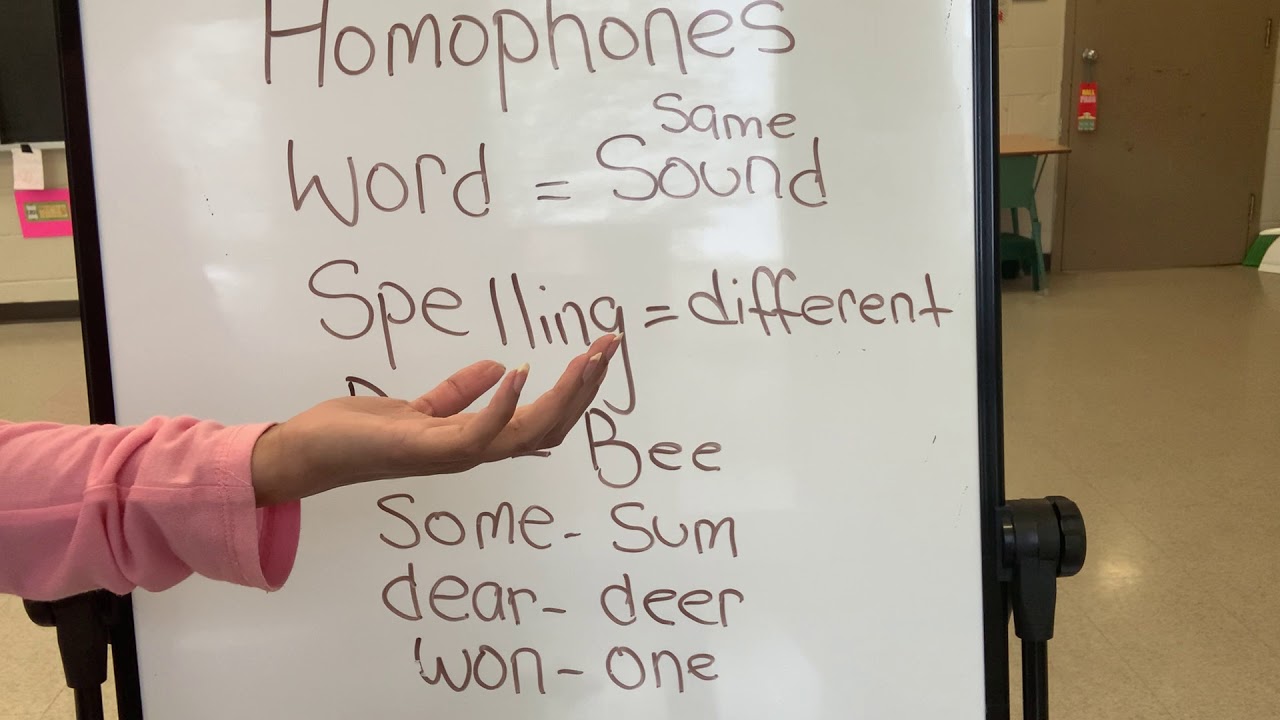 Homophones
Same
Word = Sound
Spelling = different
Bee
Some - Sum
dear - deer
won - one